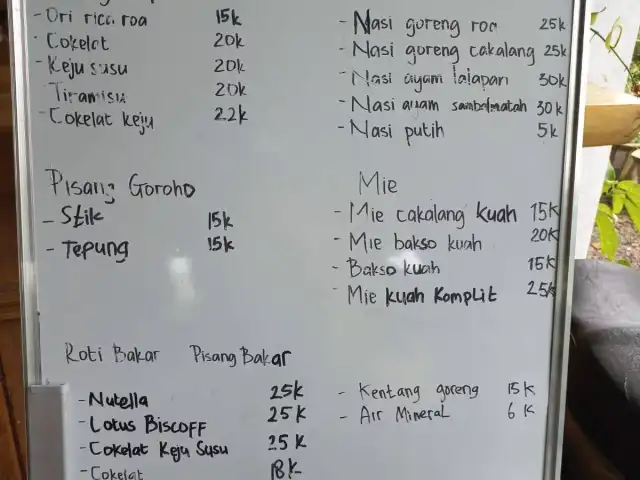 - Ori rica roa 15k
- Cokelat 20k
- Keju susu 20k
- Tiramisu 20k
- Cokelat keju 22k
Pisang Goroho
- Stik 15k
- Tepung 15k
Roti Bakar Pisang Bakar
- Nutella 25k
- Lotus Biscoff 25k
- Cokelat Keju Susu 25k
- Cokelat 18k
- Nasi goreng roa 25k
- Nasi goreng cakalang 25k
- Nasi ayam lalapan 30k
- Nasi ayam sambalmatah 30k
- Nasi putih 5k
Mie
- Mie cakalang kuah 15k
- Mie bakso kuah 20k
- Bakso kuah 15k
- Mie kuah Komplit 25k
- Kentang goreng 15k
- Air Mineral 6k